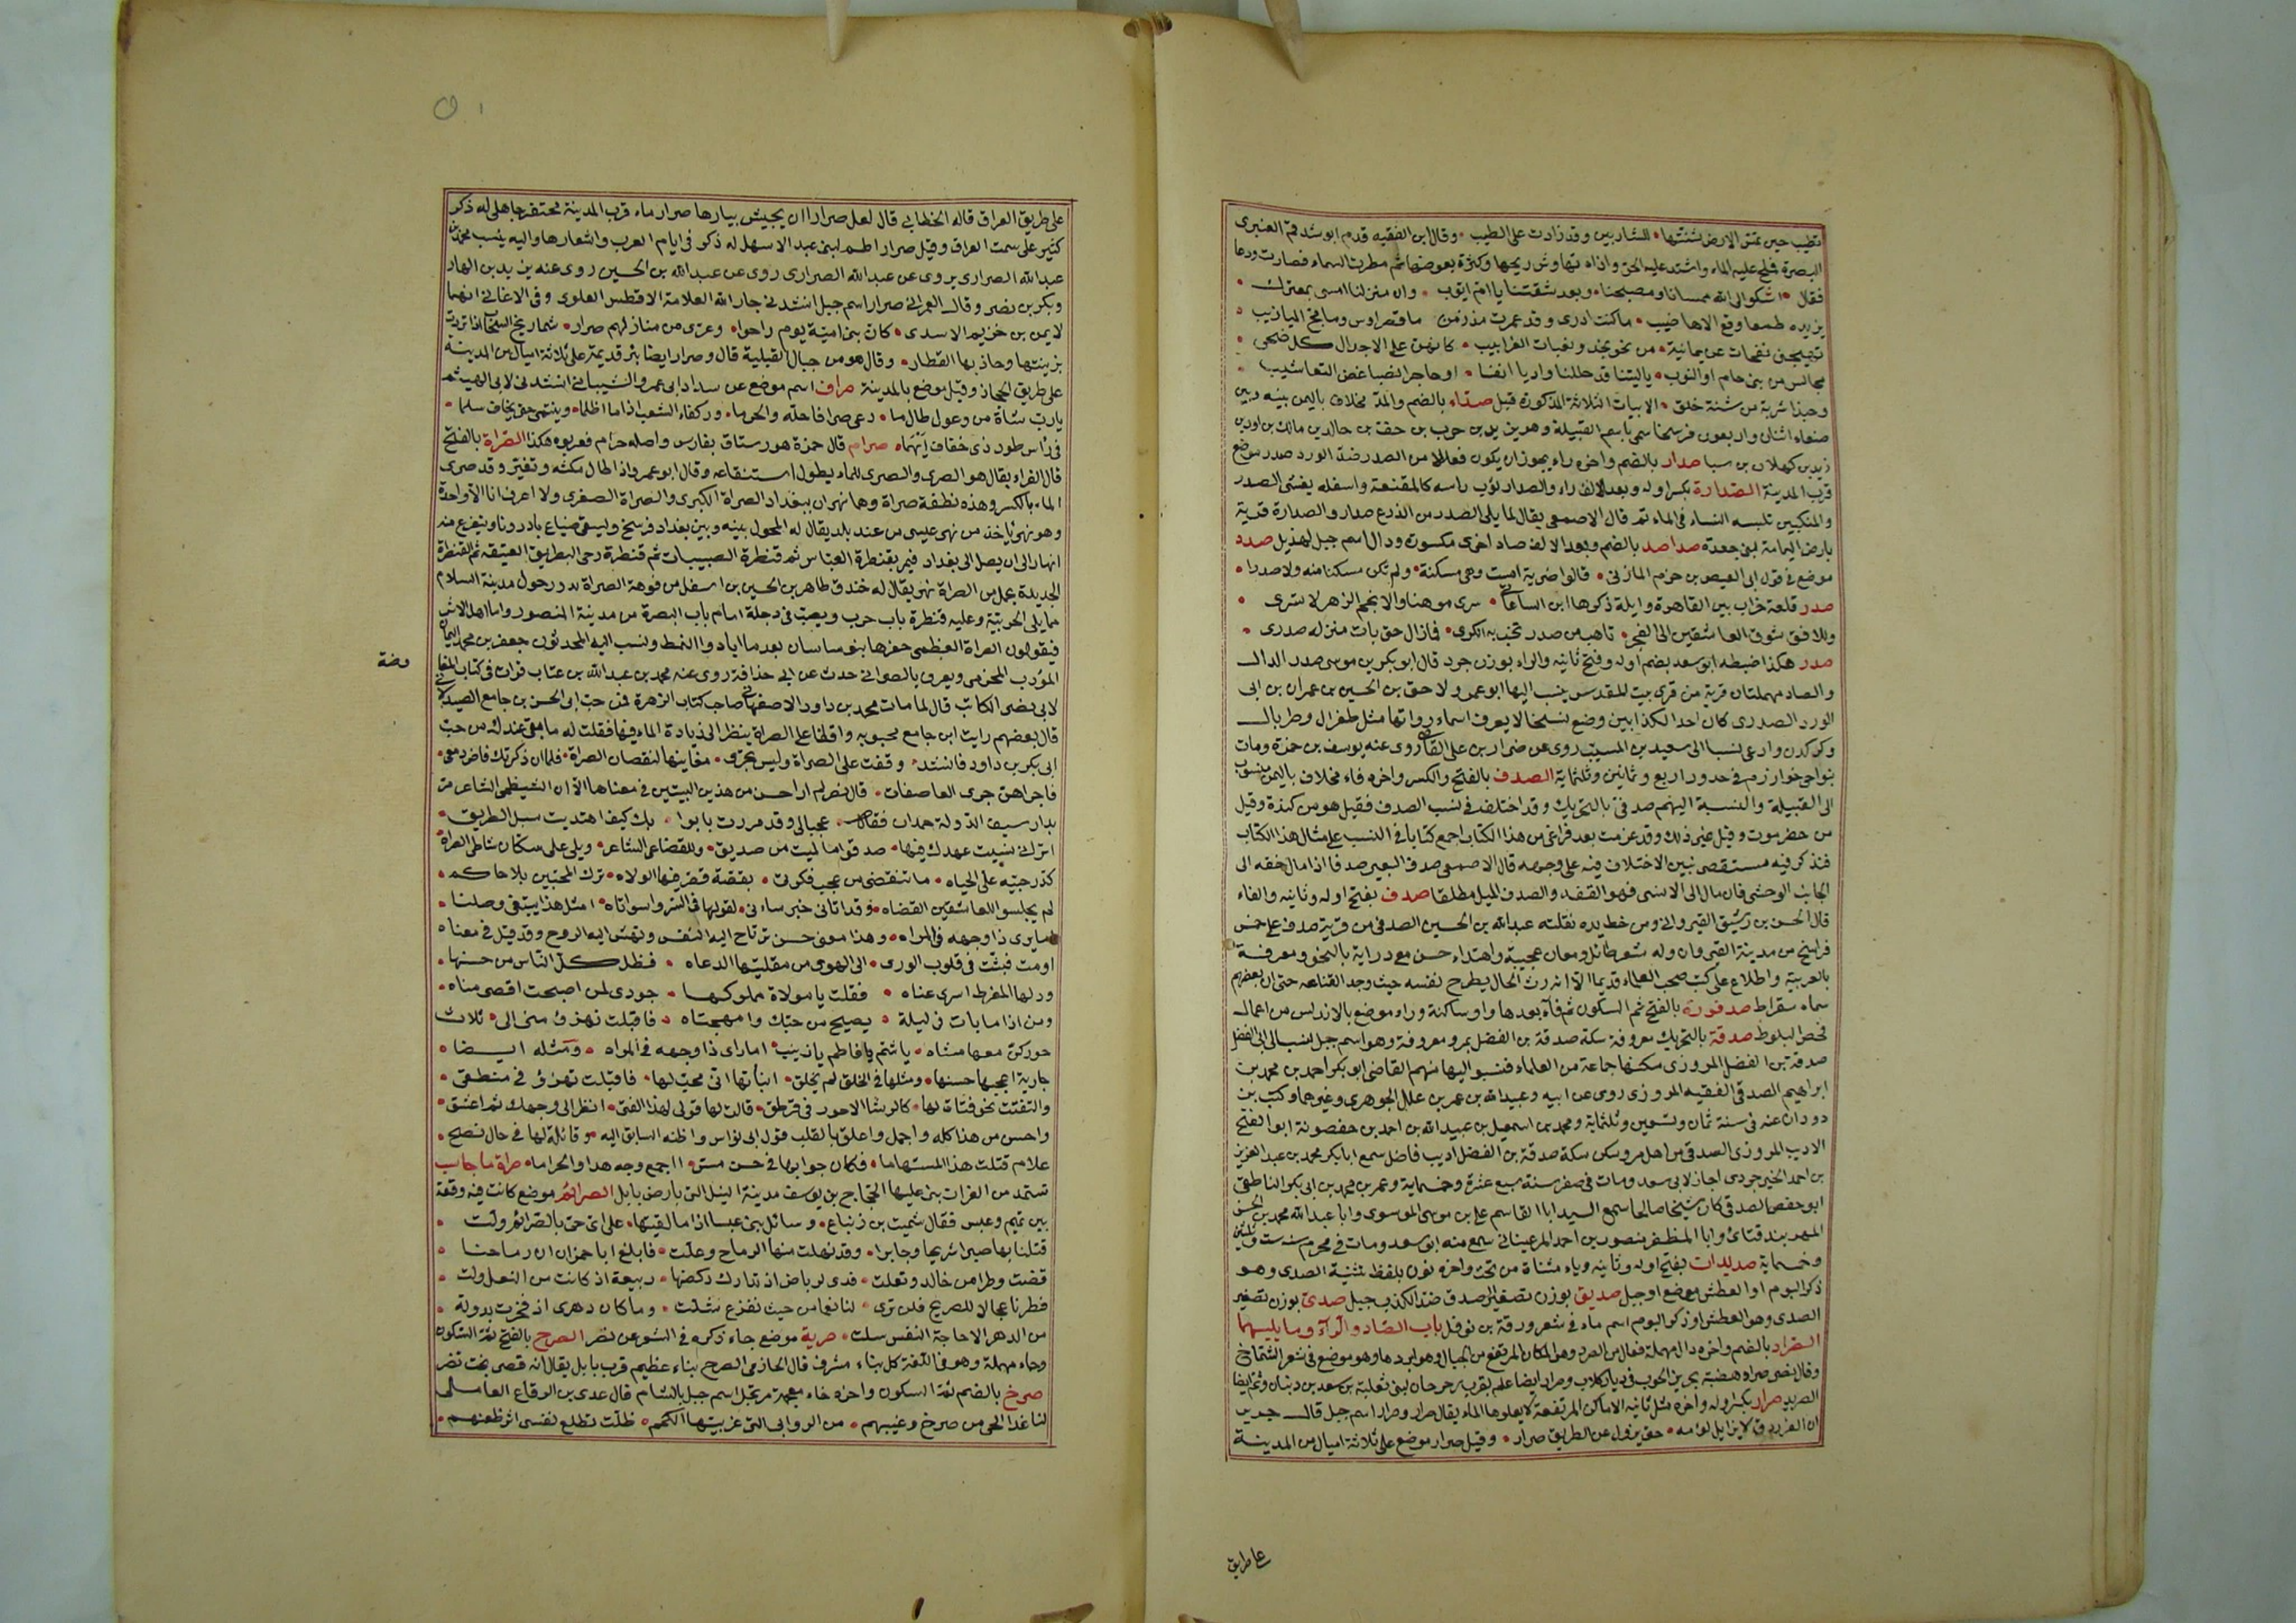 تطيب حين تمس الارض شنتها للشاربين وقد زادت على الطيب وقال ابن الفقيه قدم ابو شدقم العنبرى
البصرة فملح عليه الماء واشتد عليه الحر واذاه تهاوش ريحها وكثرة بعوضها ثم مطرت السماء فصارت ودعا
فقال اشكو الى الله ممسانا ومصبحنا وبعد شقتنا يا ام ايوب وان منزلنا امسى بمعترك
يزيده طمعا وقع الاهاضيب ما كنت ادرى وقد عمرت مذ زمن ما قصر اوس وما بخ الميازيب
تهيجنى نفحات عن يمانية من نحو نجد ونغبات الغرابيب كانهن على الاجدال كل ضحى
مجالس من بنى حام او النوب يا ليتنا قد حللنا واديا انفا او حاجرا لضبا غض التعاشيب
وحبذا شربة من شنة خلق الابيات الثلاثة المذكورة قبل صداء بالضم والمد مخلاف باليمن بينه وبين
صنعاء اثنان واربعون فرسخا سمى باسم القبيلة وهو يزيد بن حرب بن
زيد بن كهلان بن سبا صدار بالضم واخره راء يجوز ان يكون فعالا من الصدر ضد الورد صدر موضع
قرب المدينة الصدارة بكسر اوله وبعد الالف راء والصدار ثوب راسه كالمقنعة واسفله يغشى الصدر
والمنكبين تلبسه النساء فى الماتم قال الاصمعى يقال لما يلى الصدر من الدرع صدار والصدارة قرية
بارض اليمامة لبنى جعدة صداصد بالضم وبعد الالف صاد اخرى مكسورة ودال اسم جبل لهذيل صدد
موضع فى قول ابى العيص بن حزم المازنى قالوا ضرية امست وهى مسكنه ولم تكن مسكنا منه ولا صددا
صدر قلعة خراب بين القاهرة وايلة ذكرها ابن الساعاتى سرى موهنا والانجم الزهر لا تسرى
وللافق شوق العاشقين الى الفجر تاهب من صدر تخب به الكرى فما زال حتى بات منزله صدرى
صدر هكذا ضبطه ابو سعد بضم اوله وفتح ثانيه والراء بوزن جرد قال ابو بكر بن موسى صدر الدال
والصاد مهملتان قرية من قرى بيت المقدس ينسب اليها ابو عمرو لاحق بن الحسين بن عمران بن ابى
الورد الصدرى كان احد الكذابين وضع نسخا لا يعرف اسماء رواتها مثل طغرال وطربال
وكركدن وادعى نسبا الى سعيد بن المسيب روى عن ضرار بن على القاضى روى عنه يوسف بن حمزة ومات
بنواحى خوارزم فى حدود اربع وثمانين وثلثماية الصدف بالفتح والكسر واخره فاء مخلاف باليمن منسوب
الى القبيلة والنسبة اليهم صدفى بالتحريك وقد اختلف فى نسب الصدف فقيل هو من كندة وقيل
من حضرموت وقيل غير ذلك وقد عزمت بعد فراغى من هذا الكتاب اجمع كتابا فى النسب على مثال هذا الكتاب
فنذكر فيه مستقصى نبين الاختلاف فيه على وجهه قال الاصمعى صدف البعير صدفا اذا مال خفه الى
الجانب الوحشى فان مال الى الانسى فهو القفد والصدف الميل مطلقا صدف بفتح اوله وثانيه والفاء
قال الحسن بن رشيق القيروانى ومن خط يده نقلته عبد الله بن الحسين الصدفى من قرية صدف على خمس
فراسخ من مدينة القيروان وله شعر طائل ومعان عجيبة واهتداء حسن مع دراية بالنحو ومعرفة
بالعربية واطلاع على كتب صحب العلماء قديما الا انه رث الحال يطرح نفسه حيث وجد القناعه حتى ان بعضهم
سماه سقراط صدفورة بالفتح ثم السكون ثم فاء بعدها واو ساكنة وراء موضع بالاندلس من اعمال
فحص البلوط صدقة بالتحريك معروفة سكة صدقة بن الفضل بمرو معروفة وهو اسم رجل نسب الى ابى الفضل
صدقة بن الفضل المروزى سكنها جماعة من العلماء فنسبوا اليها منهم القاضى ابو بكر احمد بن محمد بن
ابراهيم الصدقى الفقيه المروزى روى عن ابيه وعبيد الله بن عمر بن علك الجوهرى وغيرهما وكتب بن
دودان عنه فى سنة ثمان وتسعين وثلثماية ومحمد بن اسمعيل بن عبيد الله بن احمد بن حفصونة ابو الفتح
الاديب المروزى الصدقى من اهل مرو سكن سكة صدقة بن الفضل اديب فاضل سمع ابا بكر محمد بن عبد العزيز
بن احمد الخيرجودى اجاز لابى سعد ومات فى صفر سنة سبع عشرة وخمسماية وعمر بن محمد بن ابى بكر الناطقى
ابو حفص الصدقى كان شيخا صالحا سمع السيد ابا القاسم على بن موسى الموسوى وابا عبد الله محمد بن الحسن
المهربندقشائى وابا المظفر منصور بن احمد المرغينانى سمع منه ابو سعد ومات فى محرم سنة ست وثلثين
وخمسماية صديدان بفتح اوله وثانيه وياء مثناة من تحت واخره نون بلفظ تثنية الصدى وهو
ذكر البوم او العطش موضع او جبل صديق بوزن تصغير الصدق ضد الكذب جبل صدى بوزن تصغير
الصدى وهو العطش او ذكر البوم اسم ماء فى شعر ورقة بن نوفل باب الصاد والراء وما يليهما
الصراد بالضم واخره دال مهملة فعال من الصرد وهو المكان المرتفع من الجبال وهو ابردها وهو موضع فى شعر الشماخ
وقال نصر صراد هضبة بحزيز الحوب فى ديار كلاب وصراد ايضا علم بقرب رحرحان لبنى ثعلبة بن سعد بن ذبيان وثم ايضا
الصريد صرار بكسر اوله واخره مثل ثانيه الاماكن المرتفعة لا يعلوها الماء يقال صرار وصرار اسم جبل قال جرير
ان الفرزدق لا يزايل لومه حتى يزول عن الطريق صرار وقيل صرار موضع على ثلاثة اميال من المدينة
على طريق
على طريق العراق قاله الخطابى قال لعل صرارا ان يجيش بيارها صرار ماء قرب المدينة محتفر جاهلى له ذكر
كثير على سمت العراق وقيل صرار اطم لبنى عبد الاسهل له ذكر فى ايام العرب واشعارها واليه ينسب محمد بن
عبد الله الصرارى يروى عن عبد الله الصرارى روى عن عبد الله بن الحسين روى عنه يزيد بن الهاد
وبكر بن نضر وقال العمرانى صرار اسم جبل انشدنى جار الله العلامة الافطس العلوى وفى الاغانى انهما
لايمن بن خريم الاسدى كان بنى امية يوم راحوا وعرى من منازلهم صرار شماريخ السحاب اذا تردت
بزينتها وحاذ بها القطار وقال هو من جبال القبلية قال وصرار ايضا بئر قديمة على ثلاثة اميال من المدينة
على طريق الحجاز وقيل موضع بالمدينة صراف اسم موضع عن سداد ابى عمرو الشيبانى انشدنى لابى الهيثم
يا رب شاة من وعول طال ما رعى صرافا حله والحرما وركفاء الشعب اذا ما اظلما وينتمى حتى يخاف سلما
فى راس طود ذى خفاف ايهما صرام قال حمزة هو رستاق بفارس واصله جرام فعربوه هكذا الصراة بالفتح
قال الفراء يقال هو الصرى والصرى للماء يطول استنقاعه وقال ابو عمرو اذا طال مكثه وتغير وقد صرى
الماء بالكسر وهذه نطفة صراة وهما نهران ببغداد الصراة الكبرى والصراة الصغرى ولا اعرف انا الا واحدة
وهو نهر ياخذ من نهر عيسى من عند بلد يقال له المحول بينه وبين بغداد فرسخ ويسقى ضياع بادرونا ويتفرع منه
انهار الى ان يصل الى بغداد فيمر بقنطرة العباس ثم قنطرة الصبيبات ثم قنطرة رحى البطريق العتيقة ثم القنطرة
الجديدة يعمل من الصراة نهر يقال له خندق طاهر بن الحسين بن اسفل من فوهة الصراة يدور حول مدينة السلام
مما يلى الحربية وعليه قنطرة باب حرب ويصب فى دجلة امام باب البصرة من مدينة المنصور واما اهل الاثر
فيقولون الصراة العظمى حفرها بنو ساسان بعد ما ابادوا النمط ونسب اليه المحدثون جعفر بن محمد اليمان
المؤدب المخرمى ويعرف بالصراتى حدث عن ابى حذافة روى عنه محمد بن عبد الله بن عتاب قرات فى كتاب المفا
وضة
لابى نصر الكاتب قال لما مات محمد بن داود الاصفهانى صاحب كتاب الزهرة من حب ابى الحسن بن جامع الصيدلانى
قال بعضهم رايت ابن جامع محبوبه واقفا على الصراة ينظر الى زيادة الماء فيها فقلت له ما بقى عندك من حب
ابى بكر بن داود فانشد وقفت على الصراة وليس تجرى معاينها لنقصان الصراة فلما ان ذكرتك فاض دمعى
فاجراهن جرى العاصفات قال نصر لم ار احسن من هذين البيتين فى معناهما الا ان الشيظمى الشاعر مر
بدار سيف الدولة حمدان فقال عجبا لى وقد مررت بابوا بك كيف اهتديت سبل الطريق
اترانى نسيت عهدك فيها صدقوا ما لميت من صديق وللقضاعى الشاعر ويلى على سكان شاطى الصراة
كدر حبيه على الحياه ما تنقضى من عجب فكرتى بقصة قصر فيها الولاه ترك المحبين بلا حاكم
لم يجلسوا للعاشقين القضاه وقد اتانى خبر ساءنى لقولها فى السر واسواتاه امثل هذا يبتغى وصلنا
اما يرى ذا وجهه فى المراه وهذا معنى حسن ترتاح اليه النفس وتهش اليه الروح وقد قيل فى معناه
اومت فبثت فى قلوب الورى الى الهوى من مقلتيها الدعاه فظل كل الناس من حسنها
ودلها المفرط اسرى عناه فقلت يا مولاة مملوكها جودى لمن اصبحت اقصى مناه
ومن اذا ما بات فى ليلة يصيح من حبك وامهجتاه فاقبلت تهزؤ منى الى ثلاث
حور كن معها مشاه يا شتم يا فاطم يا زينب اما راى ذا وجهه فى المراه ومثله ايضا
جارية اعجبها حسنها ومثلها فى الخلق لم يخلق انباتها انى محب لها فاقبلت تهزؤ فى منطقى
والتفتت نحو فتاة لها كالرشا الاحور فى قرطق قالت لها قولى لهذا الفتى انظر الى وجهك ثم اعشق
واحسن من هذا كله واجمل واعلق بالقلب قول ابى نواس واظنه السابق اليه وقائلة لها فى حال نصح
علام قتلت هذا المستهاما فكان جوابها فى حسن مس ااجمع وجه هذا والحراما صراة جاماسب
تستمد من الفرات بنى عليها الحجاج بن يوسف مدينة النيل التى بارض بابل الصرائم موضع كانت فيه وقعة
بين تميم وعبس فقال شميت بن زنباع وسائل بنى عبسا اذا ما لقيتها على اى حى بالصرائم ولت
قتلنا بها صبرا شريحا وجابرا وقد نهلت منها الرماح وعلت فابلغ ابا حمران ان رماحنا
قضت وطرا من خالد وتعلت فدى لرياض اذ تدارك ركضها ربيعة اذ كانت من النعل ولت
فطرنا عجالا للصريخ فلن ترى لنا نعما من حيث نفزع شلت وما كان دهرى اذ فخرت بدولة
من الدهر الا حاجة النفس سلت صربة موضع جاء ذكره فى الشعر عن نصر الصرح بالفتح ثم السكون
وحاء مهملة وهو فى اللغة كل بناء مشرف قال الحازمى الصرح بناء عظيم قرب بابل يقال انه قصر بخت نصر
صرخ بالضم ثم السكون واخره خاء معجمة مرتجل اسم جبل بالشام قال عدى بن الرقاع العاملى
لما غدا الحى من صرخ وغيبهم من الروابى التى غربيها الكمم ظلت تطلع نفسى اثر ظعنهم